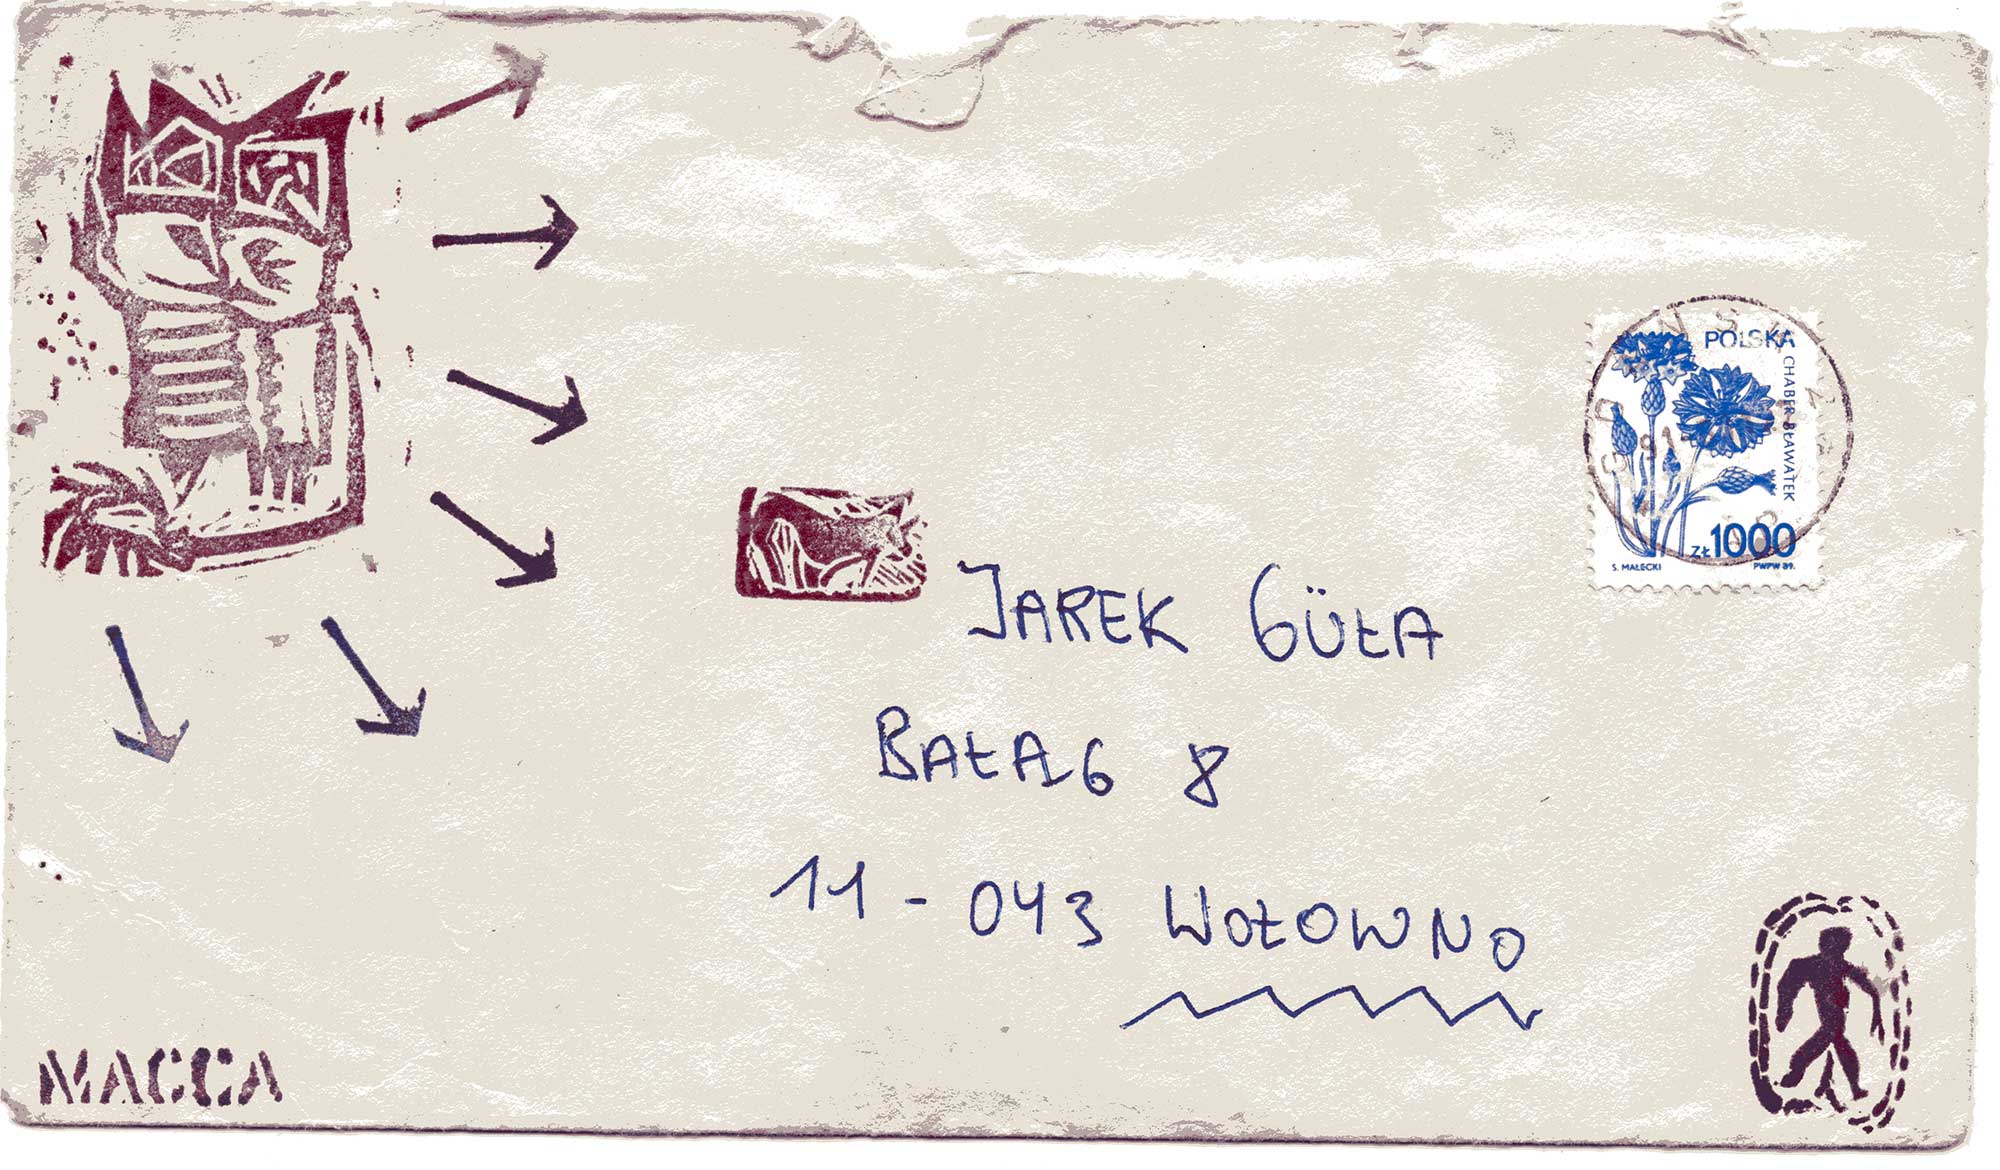 POLSKA
CHABER BŁAWATEK
ZŁ 1000
S. MAŁECKI PWPW 89.
JAREK GÜŁA
BAŁĄG 8
11-043 WOŁOWNO
MACCA